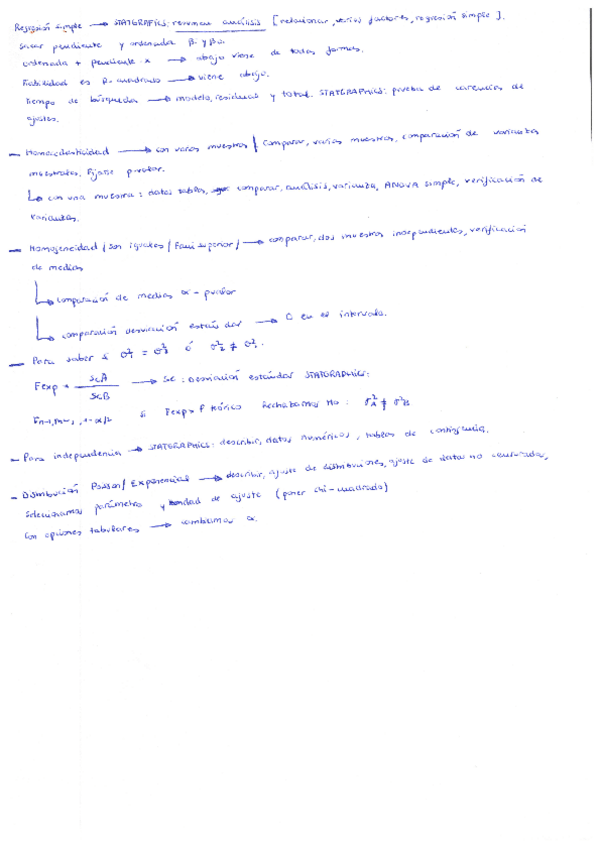 Regresión simple → STATGRAFICS: resumen análisis [relacionar, varios factores, regresión simple].
Sacar pendiente y ordenada β₁ y β₀.
ordenada + pendiente·x → abajo viene de todas formas.
Fiabilidad es R-cuadrado → viene abajo.
Tiempo de búsquedas → modelo, residuos y total. STATGRAPHICS: prueba de carencias de
ajustes.
— Homocedasticidad → con varias muestras / comparar, varias muestras, comparación de varianzas
muestrales, fijarse pvalor.
↳ con una muestra: datos tablas, comparar, análisis, varianza, ANOVA simple, verificación de
varianzas.
— Homogeneidad / son iguales / / → comparar, dos muestras independientes, verificación
de medias
↳ comparación de medias α - pvalor
↳ comparación desviación estándar → 0 en el intervalo.
— Para saber si σ²₁ = σ²₂ ó σ²₂ ≠ σ²₁.
Fexp = ScA / ScB → Sc: Desviación estándar STATGRAPHICS:
si Fexp > F teórico Rechazamos Ho: σ²A ≠ σ²B
— Para independencia → STATGRAPHICS: describir, datos numéricos, tablas de contingencia.
— Distribución Poisson / Exponencial → describir, ajuste de distribuciones, ajuste de datos no censurados,
seleccionamos parámetro y bondad de ajuste (poner chi-cuadrado)
Con opciones tabulares → cambiamos α.